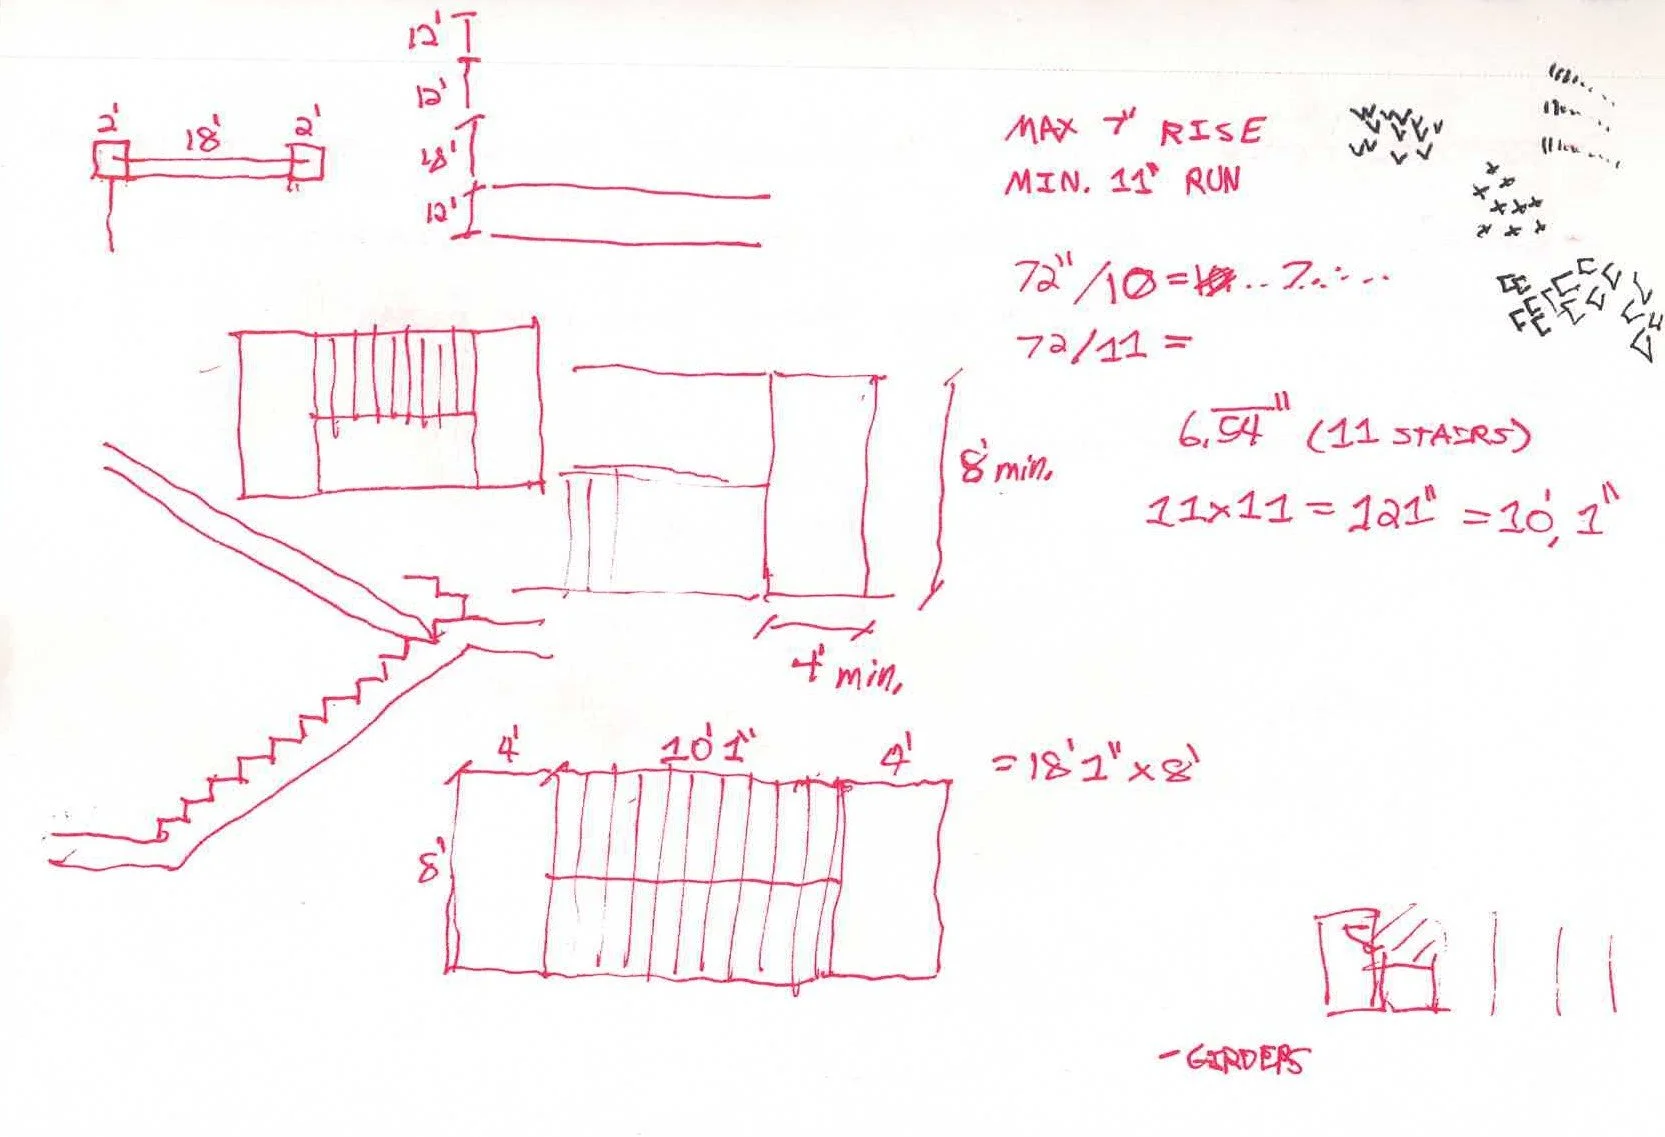 12'
12'
18'
12'
2' 18' 2'
MAX 7" RISE
MIN. 11" RUN
72"/10 = .. 7......
72/11 =
6.54" (11 STAIRS)
11x11 = 121" = 10', 1"
8' min.
4' min.
4' 10' 1" 4'
= 18' 1" x 8'
8'
- GIRDERS